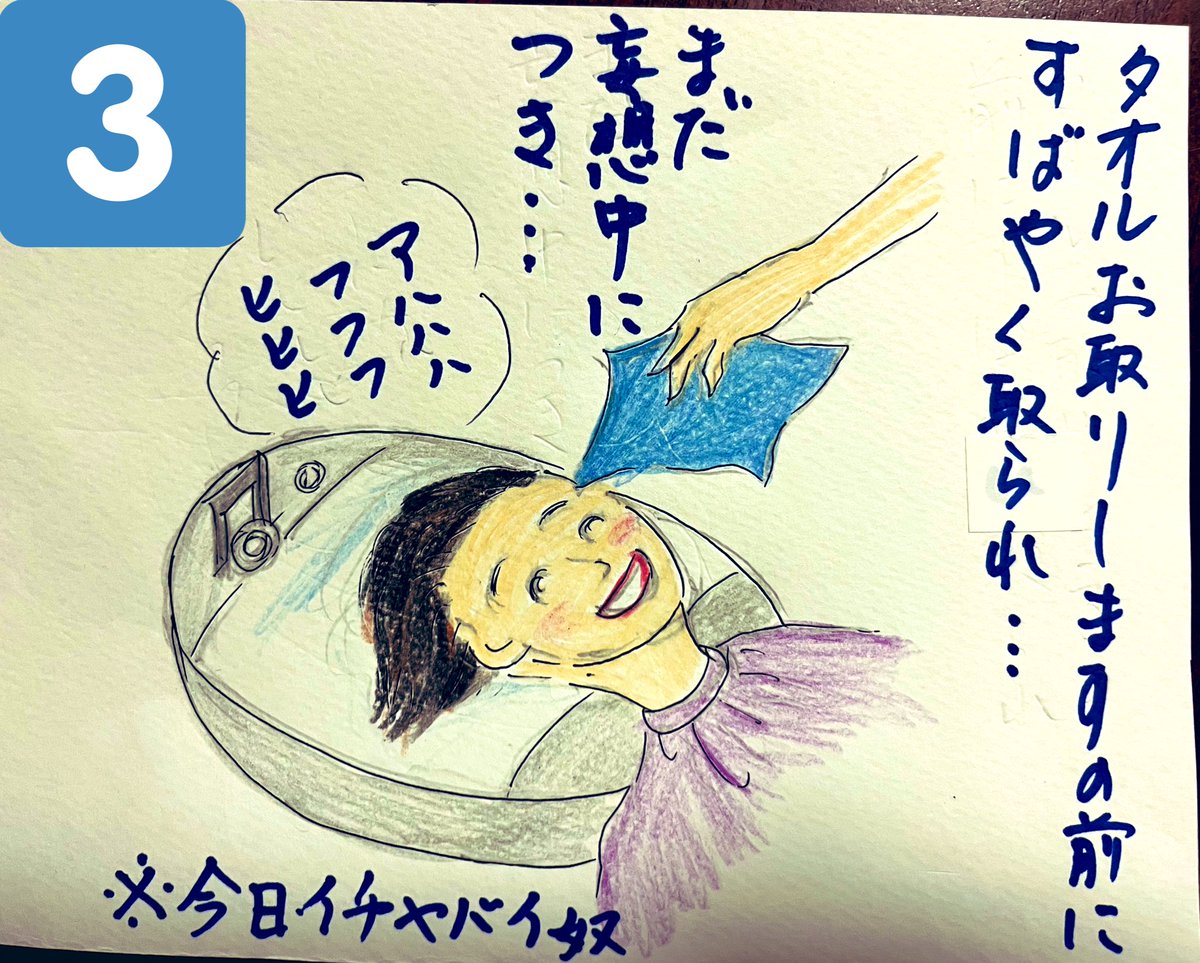 3
タオルお取りしますの前に
すばやく取られ…
まだ
妄想中に
つき…
アハハハ
フフフ
ヒヒヒ
※今日イチヤバイ奴